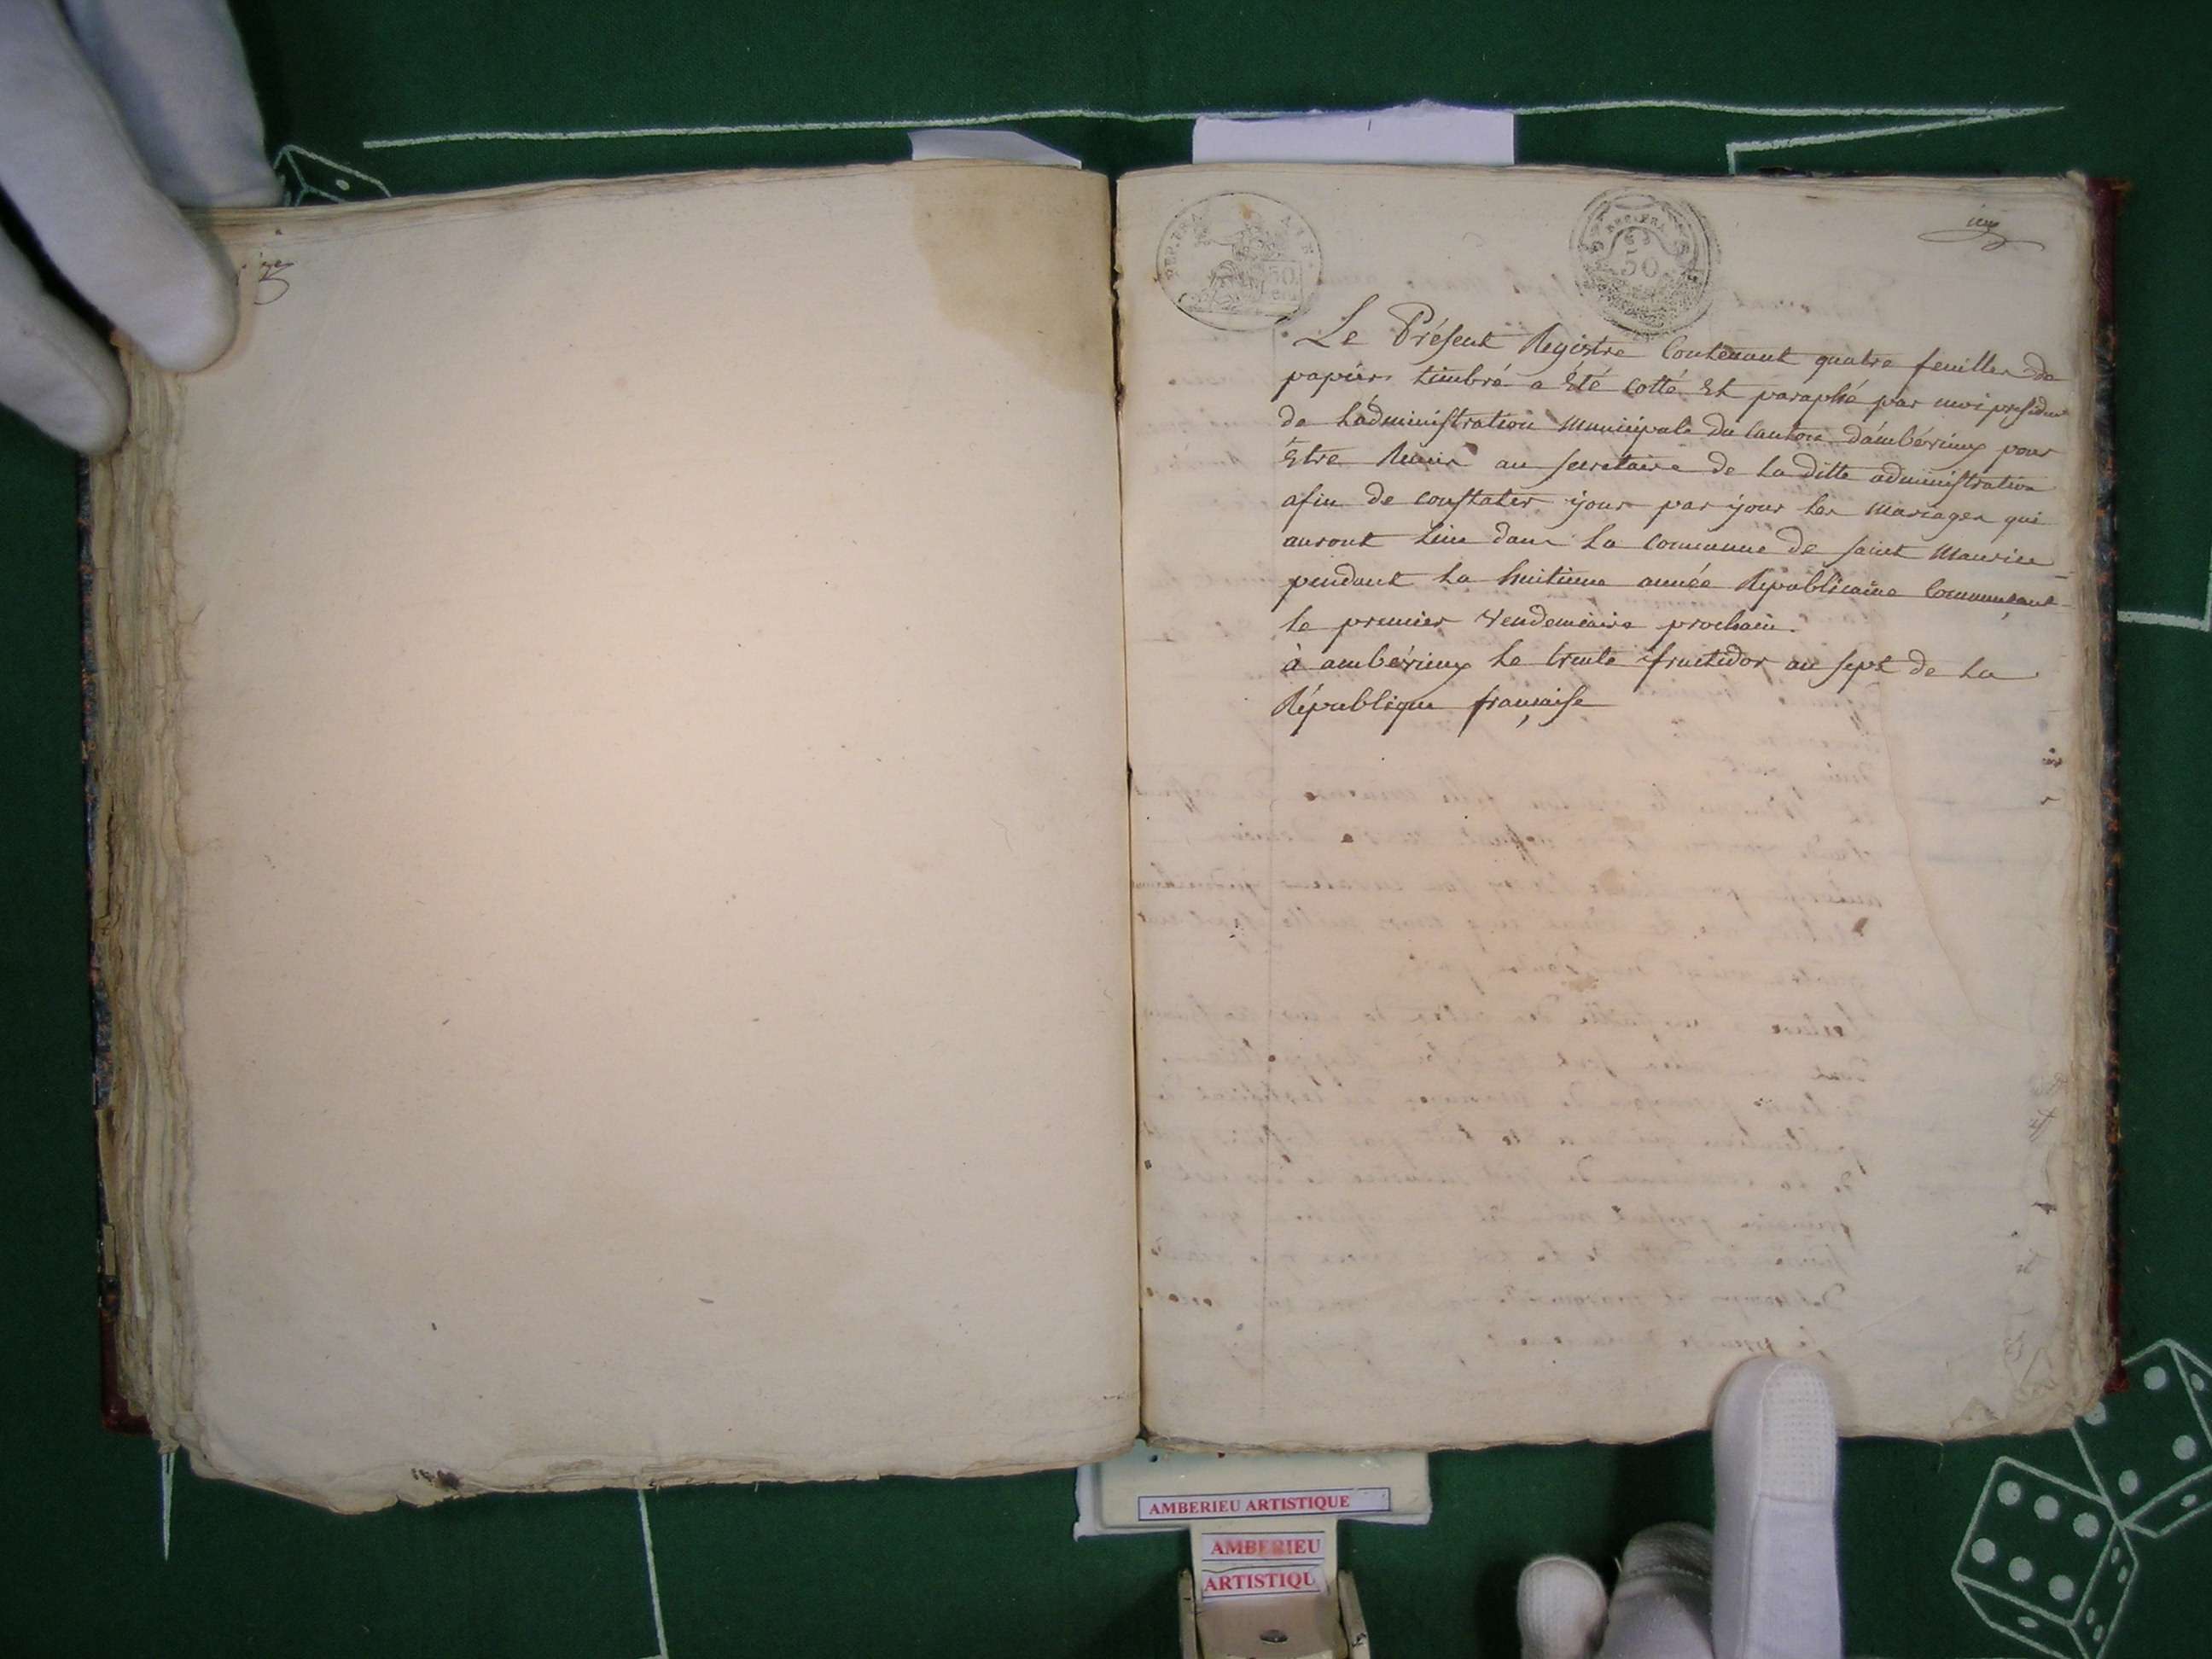 REP. FRA
50
REP. FRA
50
Le Présent Registre Contenant quatre feuilles de
papier timbré a Eté Cotté Et paraphé par moi president
de Ladministration Municipale du Canton d'ambérieux pour
Etre Remis au secretaire de la ditte administration
afin de constater jour par jour les mariages qui
auront Lieu dans La Commune de saint Maurice
pendant La huitieme année Républicaine Commençant
le premier Vendemiaire prochain.
à ambérieux le trente fructidor an sept de La
République française
AMBERIEU ARTISTIQUE
AMBERIEU
ARTISTIQU